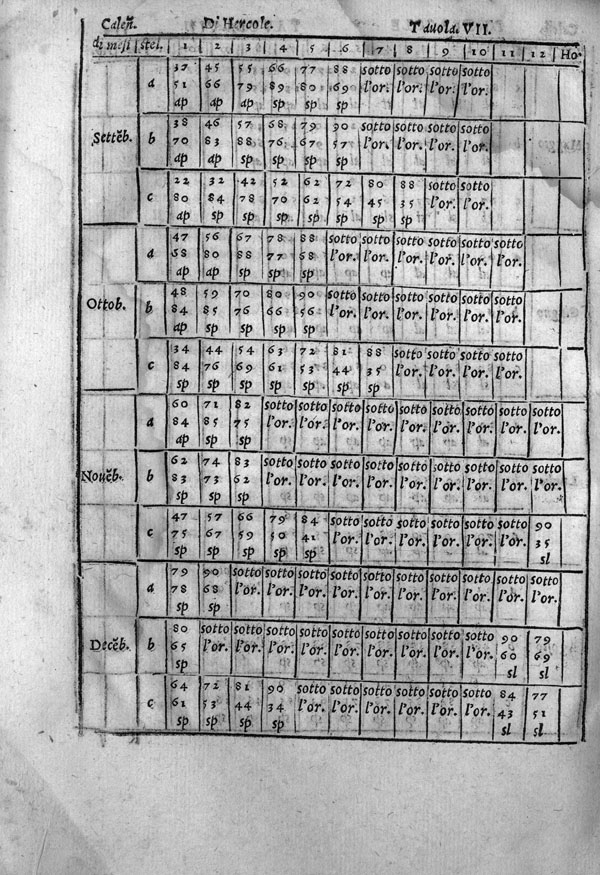 Caleñ. D'Hercole. Tavola. VII.
di mesi stel. 1 2 3 4 5 6 7 8 9 10 11 12 Ho.
37 45 55 66 77 88 sotto sotto sotto sotto
a 51 66 79 89 80 69 l'or. l'or. l'or. l'or.
ap ap ap sp sp sp
38 46 57 68 79 90 sotto sotto sotto sotto
Settĕb. b 70 83 88 76 67 57 l'or. l'or. l'or. l'or.
ap ap sp sp sp sp
22 32 42 52 62 72 80 88 sotto sotto
c 80 84 78 70 62 54 45 35 l'or. l'or.
ap sp sp sp sp sp sp sp
47 56 67 78 88 sotto sotto sotto sotto sotto
a 68 80 88 77 68 l'or. l'or. l'or. l'or. l'or.
ap ap sp sp sp
48 59 70 80 90 sotto sotto sotto sotto sotto
Ottob. b 84 85 76 66 56 l'or. l'or. l'or. l'or. l'or.
ap sp sp sp sp
34 44 54 63 72 81 88 sotto sotto sotto
c 84 76 69 61 53 44 35 l'or. l'or. l'or.
sp sp sp sp sp sp sp
60 71 82 sotto sotto sotto sotto sotto sotto sotto sotto sotto
a 84 85 75 l'or. l'or. l'or. l'or. l'or. l'or. l'or. l'or. l'or.
ap sp sp
62 74 83 sotto sotto sotto sotto sotto sotto sotto sotto sotto
Nouĕb. b 83 73 62 l'or. l'or. l'or. l'or. l'or. l'or. l'or. l'or. l'or.
sp sp sp
47 57 66 79 84 sotto sotto sotto sotto sotto sotto 90
c 75 67 59 50 41 l'or. l'or. l'or. l'or. l'or. l'or. 35
sp sp sp sp sp sl
79 90 sotto sotto sotto sotto sotto sotto sotto sotto sotto sotto
a 78 68 l'or. l'or. l'or. l'or. l'or. l'or. l'or. l'or. l'or. l'or.
sp sp
80 sotto sotto sotto sotto sotto sotto sotto sotto sotto 90 79
Decĕb. b 65 l'or. l'or. l'or. l'or. l'or. l'or. l'or. l'or. l'or. 60 69
sp sl sl
64 72 81 90 sotto sotto sotto sotto sotto sotto 84 77
c 61 53 44 34 l'or. l'or. l'or. l'or. l'or. l'or. 43 51
sp sp sp sp sl sl